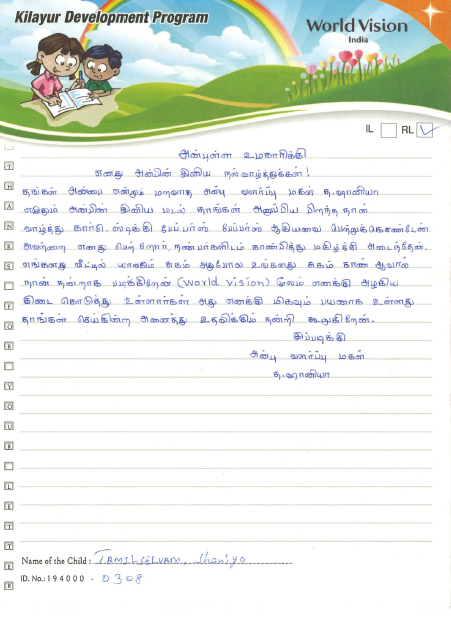 Kilayur Development Program
World Vision
India
IL RL
அன்புள்ள உமகாரிக்கி
எனது அன்பின் இனிய நல்வாழ்த்துக்கள்!
தங்கள் அன்பை என்றும் மறவாத அன்பு வளர்ப்பு மகள் த.ஷானியா
எழுதும் அன்பின் இனிய மடல் தாங்கள் அனுப்பிய பிறந்த நாள்
வாழ்த்து கார்டு, ஸ்டிக்கி பேப்பர்ஸ் பேப்பர்ஸ் ஆகியவை பெற்றுக்கொண்டேன்
அவற்றை எனது பெற்றோர், நண்பர்களிடம் காண்பித்து மகிழ்ச்சி அடைந்தேன்.
எங்களது வீட்டில் யாவரும் சுகம் அதுபோல உங்களது சுகம் காண ஆவல்
நான் நன்றாக படிக்கிறேன் (World Vision) மூலம் எனக்கு அழகிய
கொடுத்து உள்ளார்கள் அது எனக்கு மிகவும் பயனாக உள்ளது
தாங்கள் செய்கின்ற அனைத்து உதவிக்கும் நன்றி கூறுகிறேன்.
இப்படிக்கு
அன்பு வளர்ப்பு மகள்
த.ஷானியா
THANKS FOR YOUR LETTER
Name of the Child : TAMILSELVAM, Shaniya
ID. No.: 194000 - 0308